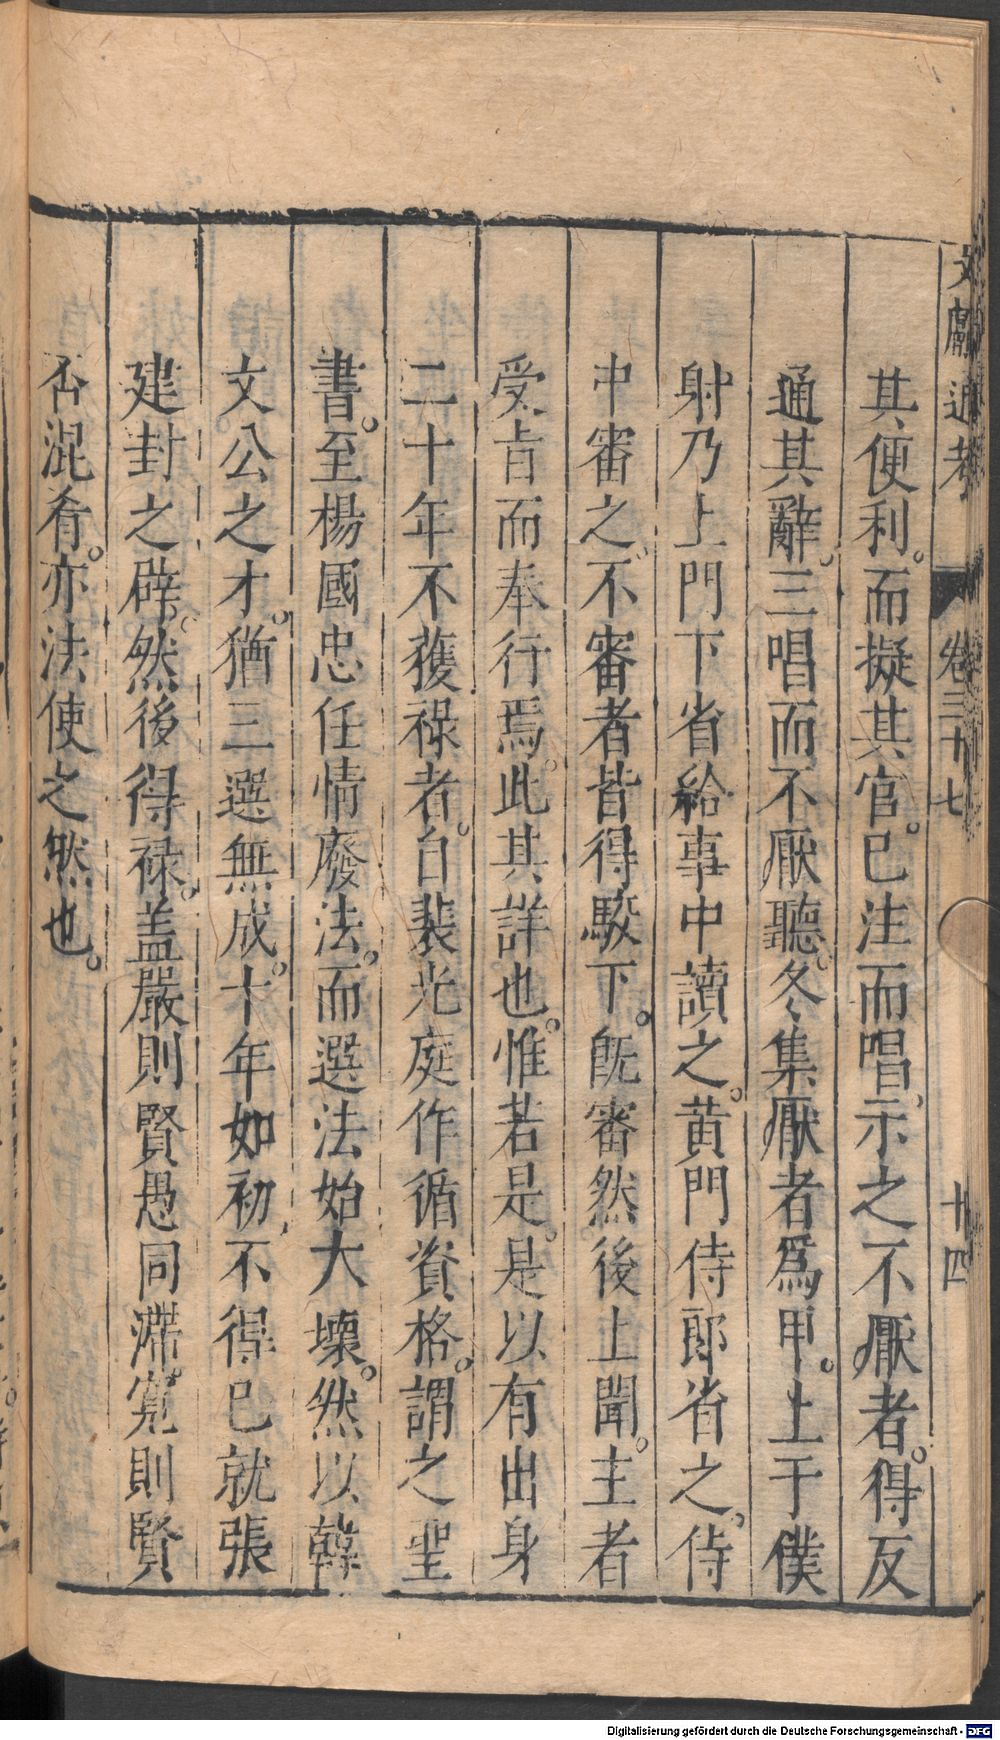 文獻通考 卷三十七 十四
其便利。而擬其官。已注而唱、示之不厭者。得反
通其辭。三唱而不厭聽。冬集厭者爲甲。上于僕
射乃上門下省給事中讀之。黃門侍郎省之。侍
中審之。不審者皆得駁下。旣審然後上聞。主者
受旨而奉行焉。此其詳也。惟若是。是以有出身
二十年不獲祿者。自裴光庭作循資格。謂之聖
書。至楊國忠任情廢法。而選法始大壞。然以韓
文公之才。猶三選無成。十年如初、不得已就張
建封之辟。然後得祿。盖嚴則賢愚同滯。寬則賢
否混肴。亦法使之然也。
Digitalisierung gefördert durch die Deutsche Forschungsgemeinschaft - DFG